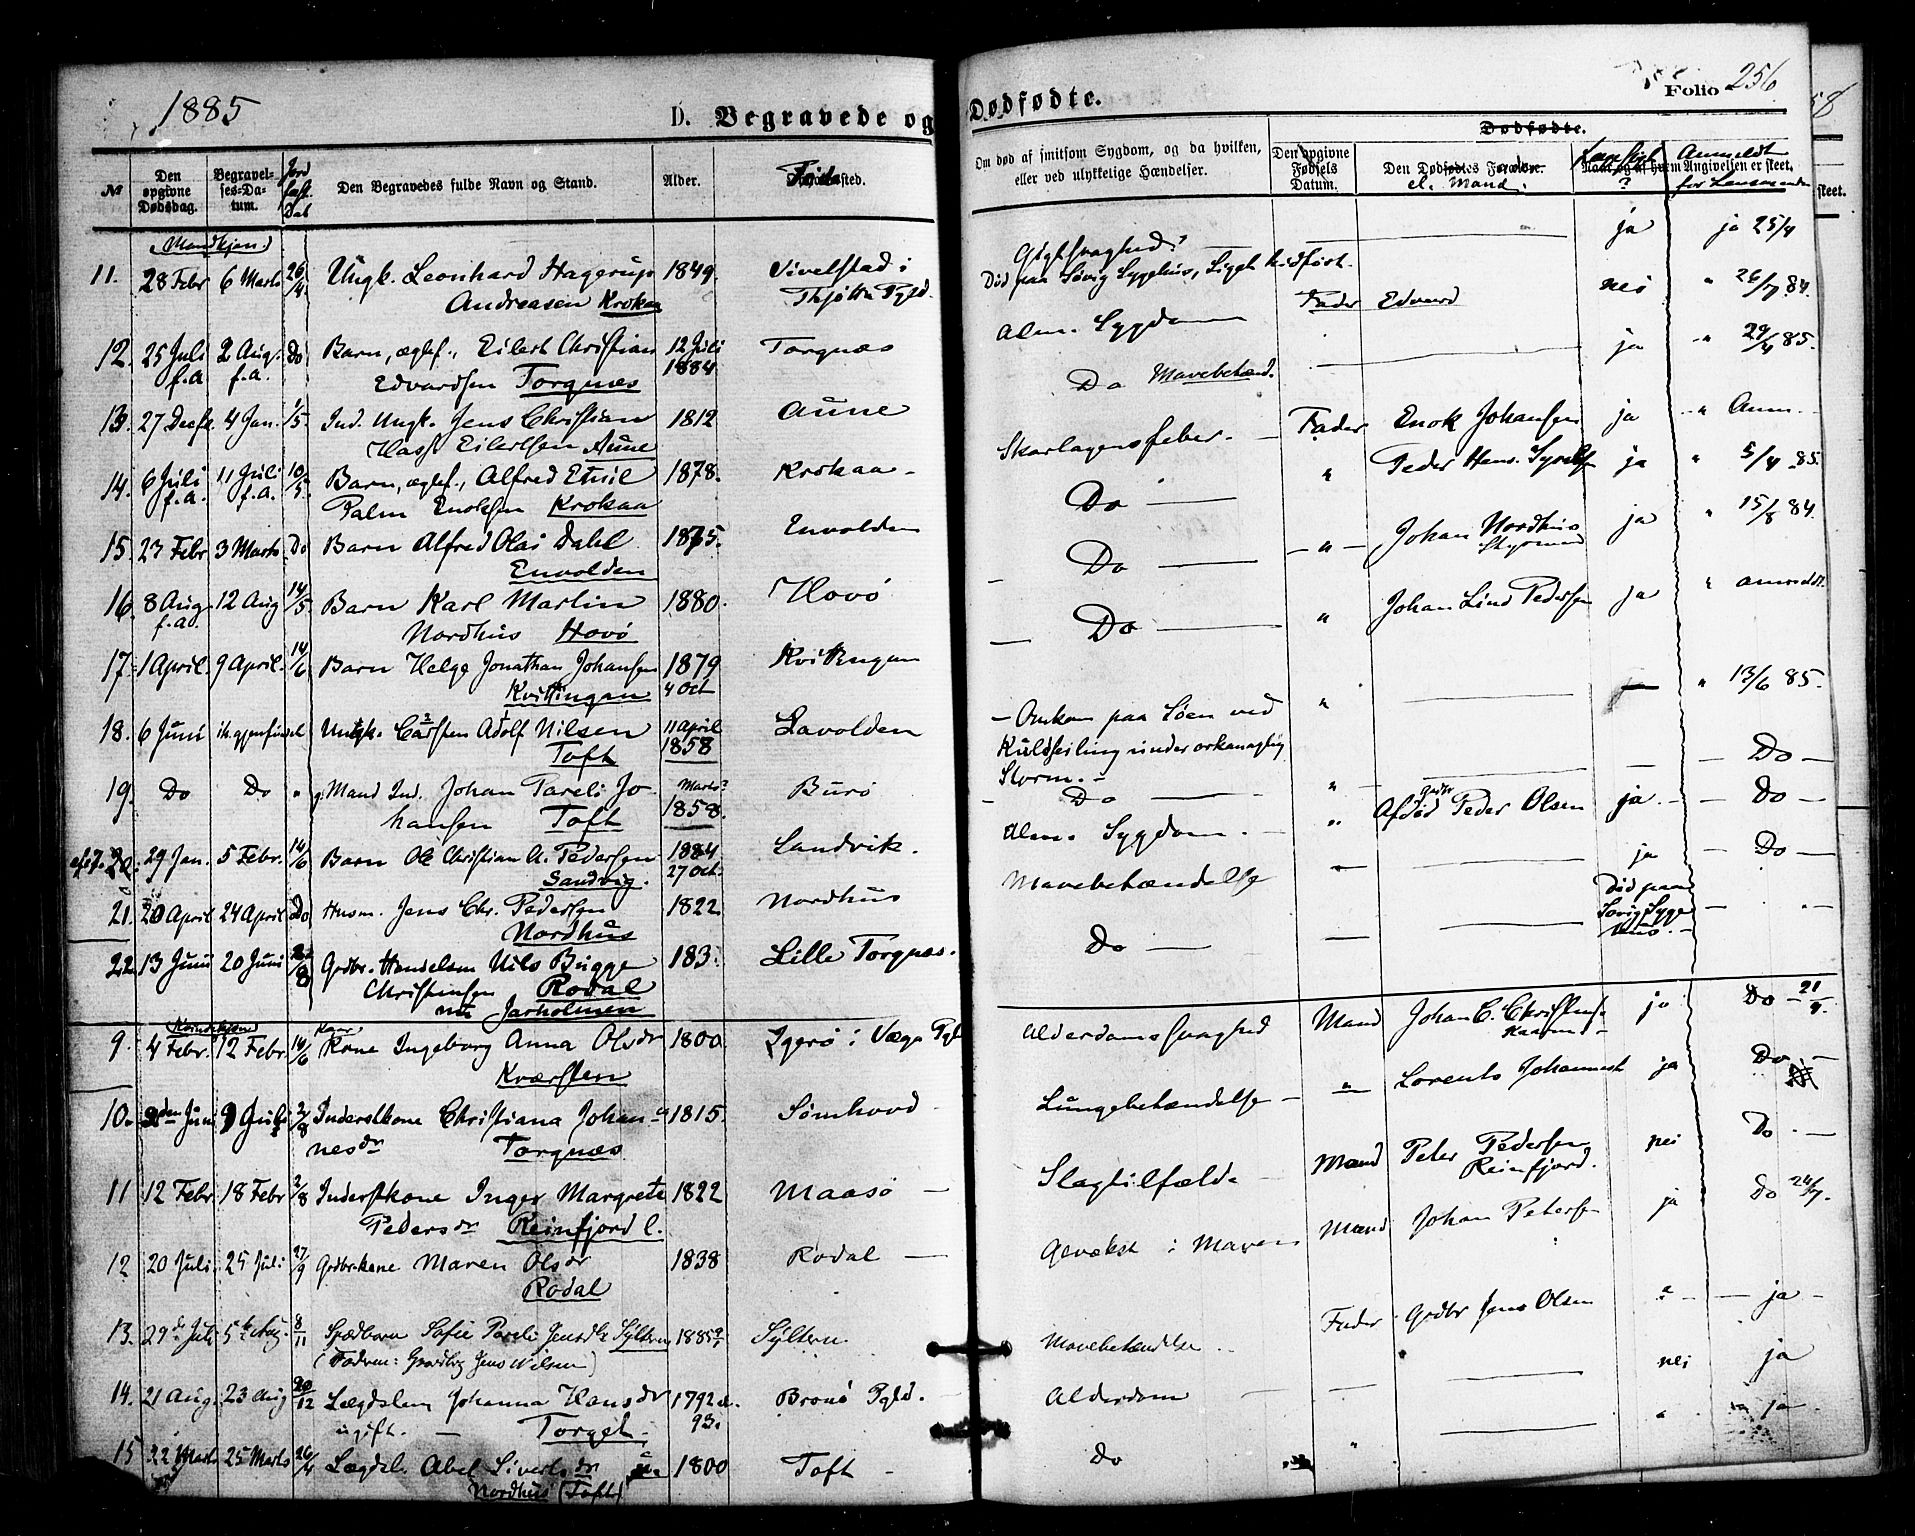 1885
D. Begravede og
№
Den opgivne Dødsdag.
Begravelses-Datum.
Jord fæst. Dat
Den Begravedes fulde Navn og Stand.
Alder.
Mandkjøn.
11. 28 Febr 6 Marts 26/4 Ungk. Leonhard Hagerup 1849. Vivelstad i
Andreasen Krokaa Thjøtta Pgld.
12. 25 Juli 2 Aug. Do Barn, ægtef., Eilert Christian 12 Juli Torgnæs
f.a. f.a. Edvardsen Torgnæs 1884
13. 27 Decbr 4 Jan. 1/5. Ind. Ungk. Jens Christian 1812 Aune
Eilertsen Aune
14. 6 Juli 11 Juli 10/5. Barn, ægtef., Alfred Emil 1878. Krokaa
f.a. f.a. Palm Enoksen Krokaa
15. 23 Febr 3 Marts Do Barn Alfred Olai Dahl 1875. Envolden
Envolden
16. 8 Aug 12 Aug 14/5. Barn Karl Martin 1880. Hovø
f.a. Nordhus Hovø
17. 1 April. 9 April. 14/6 Barn Helge Jonathan Johansen 1879 Kvittingen
Kvittingen 4 Oct
18. 6 Juni ik. gjenfundet Ungk. Carsten Adolf Nilsen 11 April Lavolden
Toft 1858
19. Do Do " g. Mand Ind. Johan Pareli Jo Marts? Burø
hansen Toft 1858.
20. 29 Jan. 5 Febr. 14/6 Barn Ole Christian A. Pedersen 1884 Sandvik.
Sandvig. 27 Oct.
21. 20 April 24 April Do Husm. Jens Chr. Pedersen 1822. Nordhus
Nordhus
22. 13 Juni 20 Juni Grdbr. Handelsm Nils Bugge 183 Lille Torgnæs.
Christensen Rodal
nu Jarholmen
Kvindekjøn
9. 4 Febr. 12 Febr. 14/6 Kone Ingeborg Anna Olsdr 1800 Igerø i Vega Pgld
Kværsten
10. Juni Juli 2/8 Inderstkone Christiana Johan 1815. Sømhovd
nesdr Torgnæs
11 12 Febr. 18 Febr 2/8 Inderstkone Inger Margrete 1822 Maasø
Pedersdr Reinfjord l.
12 20 Juli. 25 Juli 27/9 Grdbr.kone Maren Olsdr 1838 Rodal
Rodal
13. 29de Juli 5te Aug. 8/11 Spædbarn Sofie Pareli Jensdr Sylten 1885 Sylten.
(Fadren: Grdbr Jens Nilsen)
14. 21 Aug. 23 Aug 20/12 Lægdslem Johanna Hansdr 1792 el. Brønø Pgld.
ugift. Torget. 93.
15 22 Marts 25 Marts 26/4 Lægdsl. Abel Sivertsdr 1800 Toft
Nordhus (Toft)
Dødfødte.
Folio 256
Om død af smitsom Sygdom, og da hvilken, eller ved ulykkelige Hændelser.
Den opgivne Fødsels Datum.
Dødfødte.
Den Dødfødtes Forældre.
el. Mand.
Navn og af hvem Angivelsen er skeet.
Anmeldt
for Lensmanden
Gigtsvaghed? ja ja 25/4
Død paa Søvig Sygehus, Liget hidført.
Alm. Sygdom Fader Edvard nei " 26/7 84.
Do Mavebetænd. ja " 29/4 85.
Skarlagensfeber. Fader Enok Johansen ja " Anm.
Do " Peder Hans. ja " 5/4 85.
Do " Johan Nordhus ja " 15/8 84.
Do " Johan Lind Pedersen ja " anmeldt.
Omkom paa Søen ved " 13/6 85.
Kuldseiling under orkanagtig
Storm.
Do Do
Alm. Sygdom. Afdød Grdbr Peder Olsen ja Do
Mavebetændelse ja Do
Do Død paa
Søvig Syge
hus.
Alderdomssvaghed Mand Johan C. Christens. ja Do 21/9.
Lungebetændelse " Lorents Johannes ja Do
Slagtilfælde Mand Peter Pedersen nei Do
Reinfjord.
Gevækst i Maven Mand Johan Peters ja Do 24/7.
Mavebetændelse Fader Grdbr Jens Olsen " ja
Alderdom nei ja
Do " ja